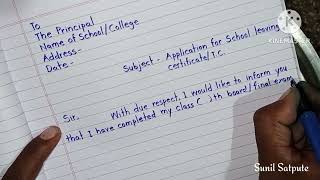 To
The Principal
Name of School/College
Address:-
Date:-
Subject - Application for School leaving
certificate/T.C.
Sir,
With due respect, I would like to inform you
that I have completed my class ( )th board/final exam
KINEMASTER
Sunil Satpute